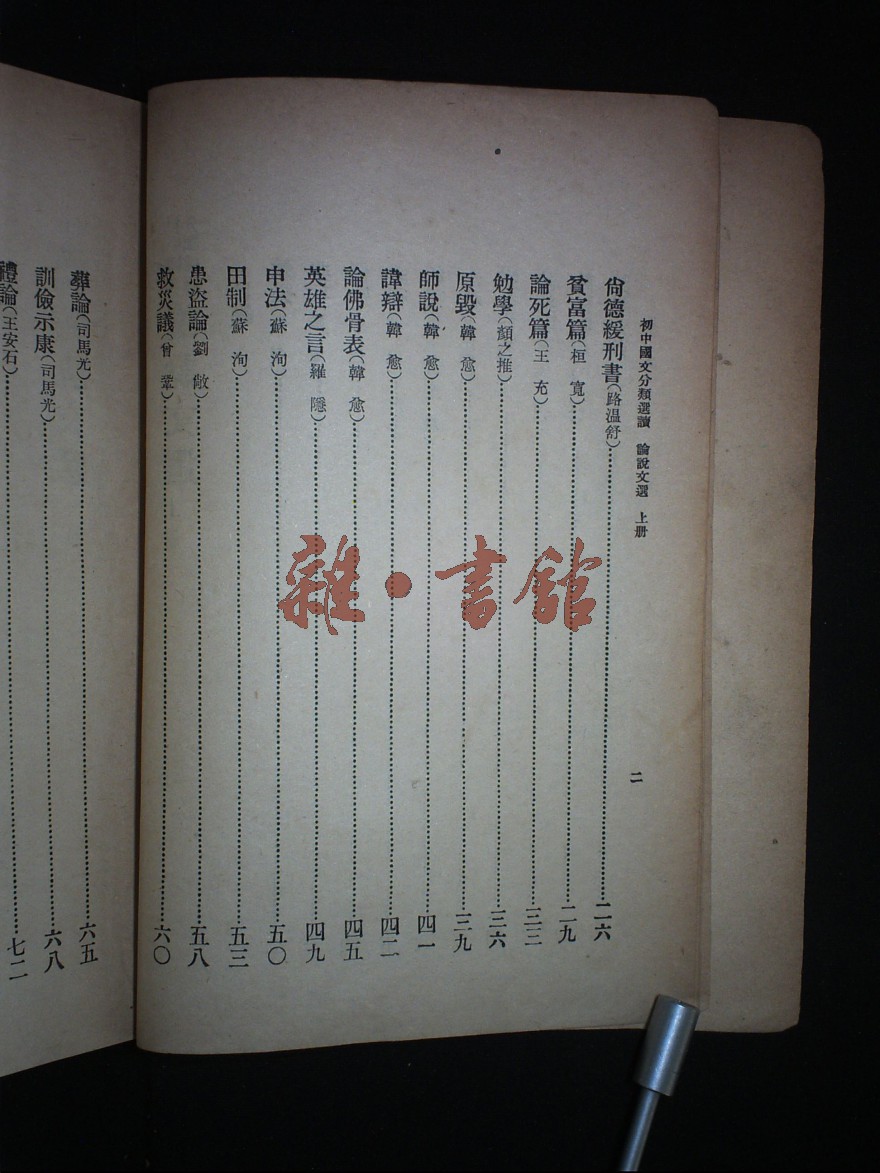 初中國文分類選讀　論說文選　上册
二
尙德緩刑書(路温舒)……二六
貧富篇(桓　寬)……二九
論死篇(王　充)……三三
勉學(顏之推)……三六
原毀(韓　愈)……三九
師說(韓　愈)……四一
諱辯(韓　愈)……四二
論佛骨表(韓　愈)……四五
英雄之言(羅　隱)……四九
申法(蘇　洵)……五〇
田制(蘇　洵)……五三
患盜論(劉　敞)……五八
救災議(曾　鞏)……六〇
葬論(司馬光)……六五
訓儉示康(司馬光)……六八
禮論(王安石)……七二
雜·書館